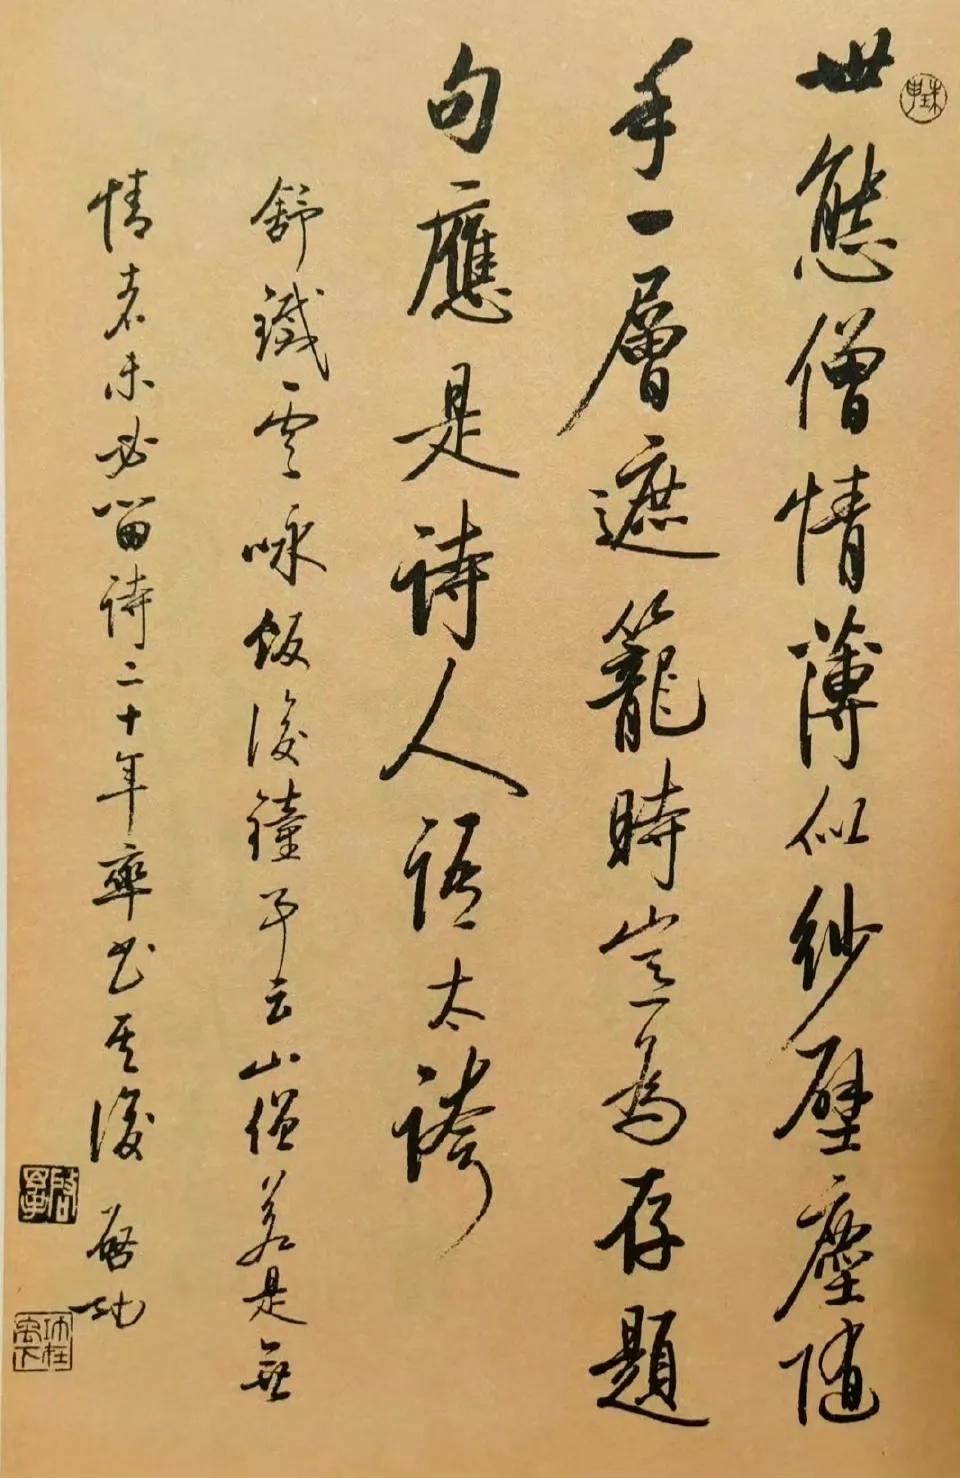 世態僧情薄似紗壁塵隨
手一層遮籠時豈為存題
句應是詩人語太誇
舒鐵雲咏飯後鐘予云山僧若是無
情者未必留詩二十年率書其後 啟功
珠申